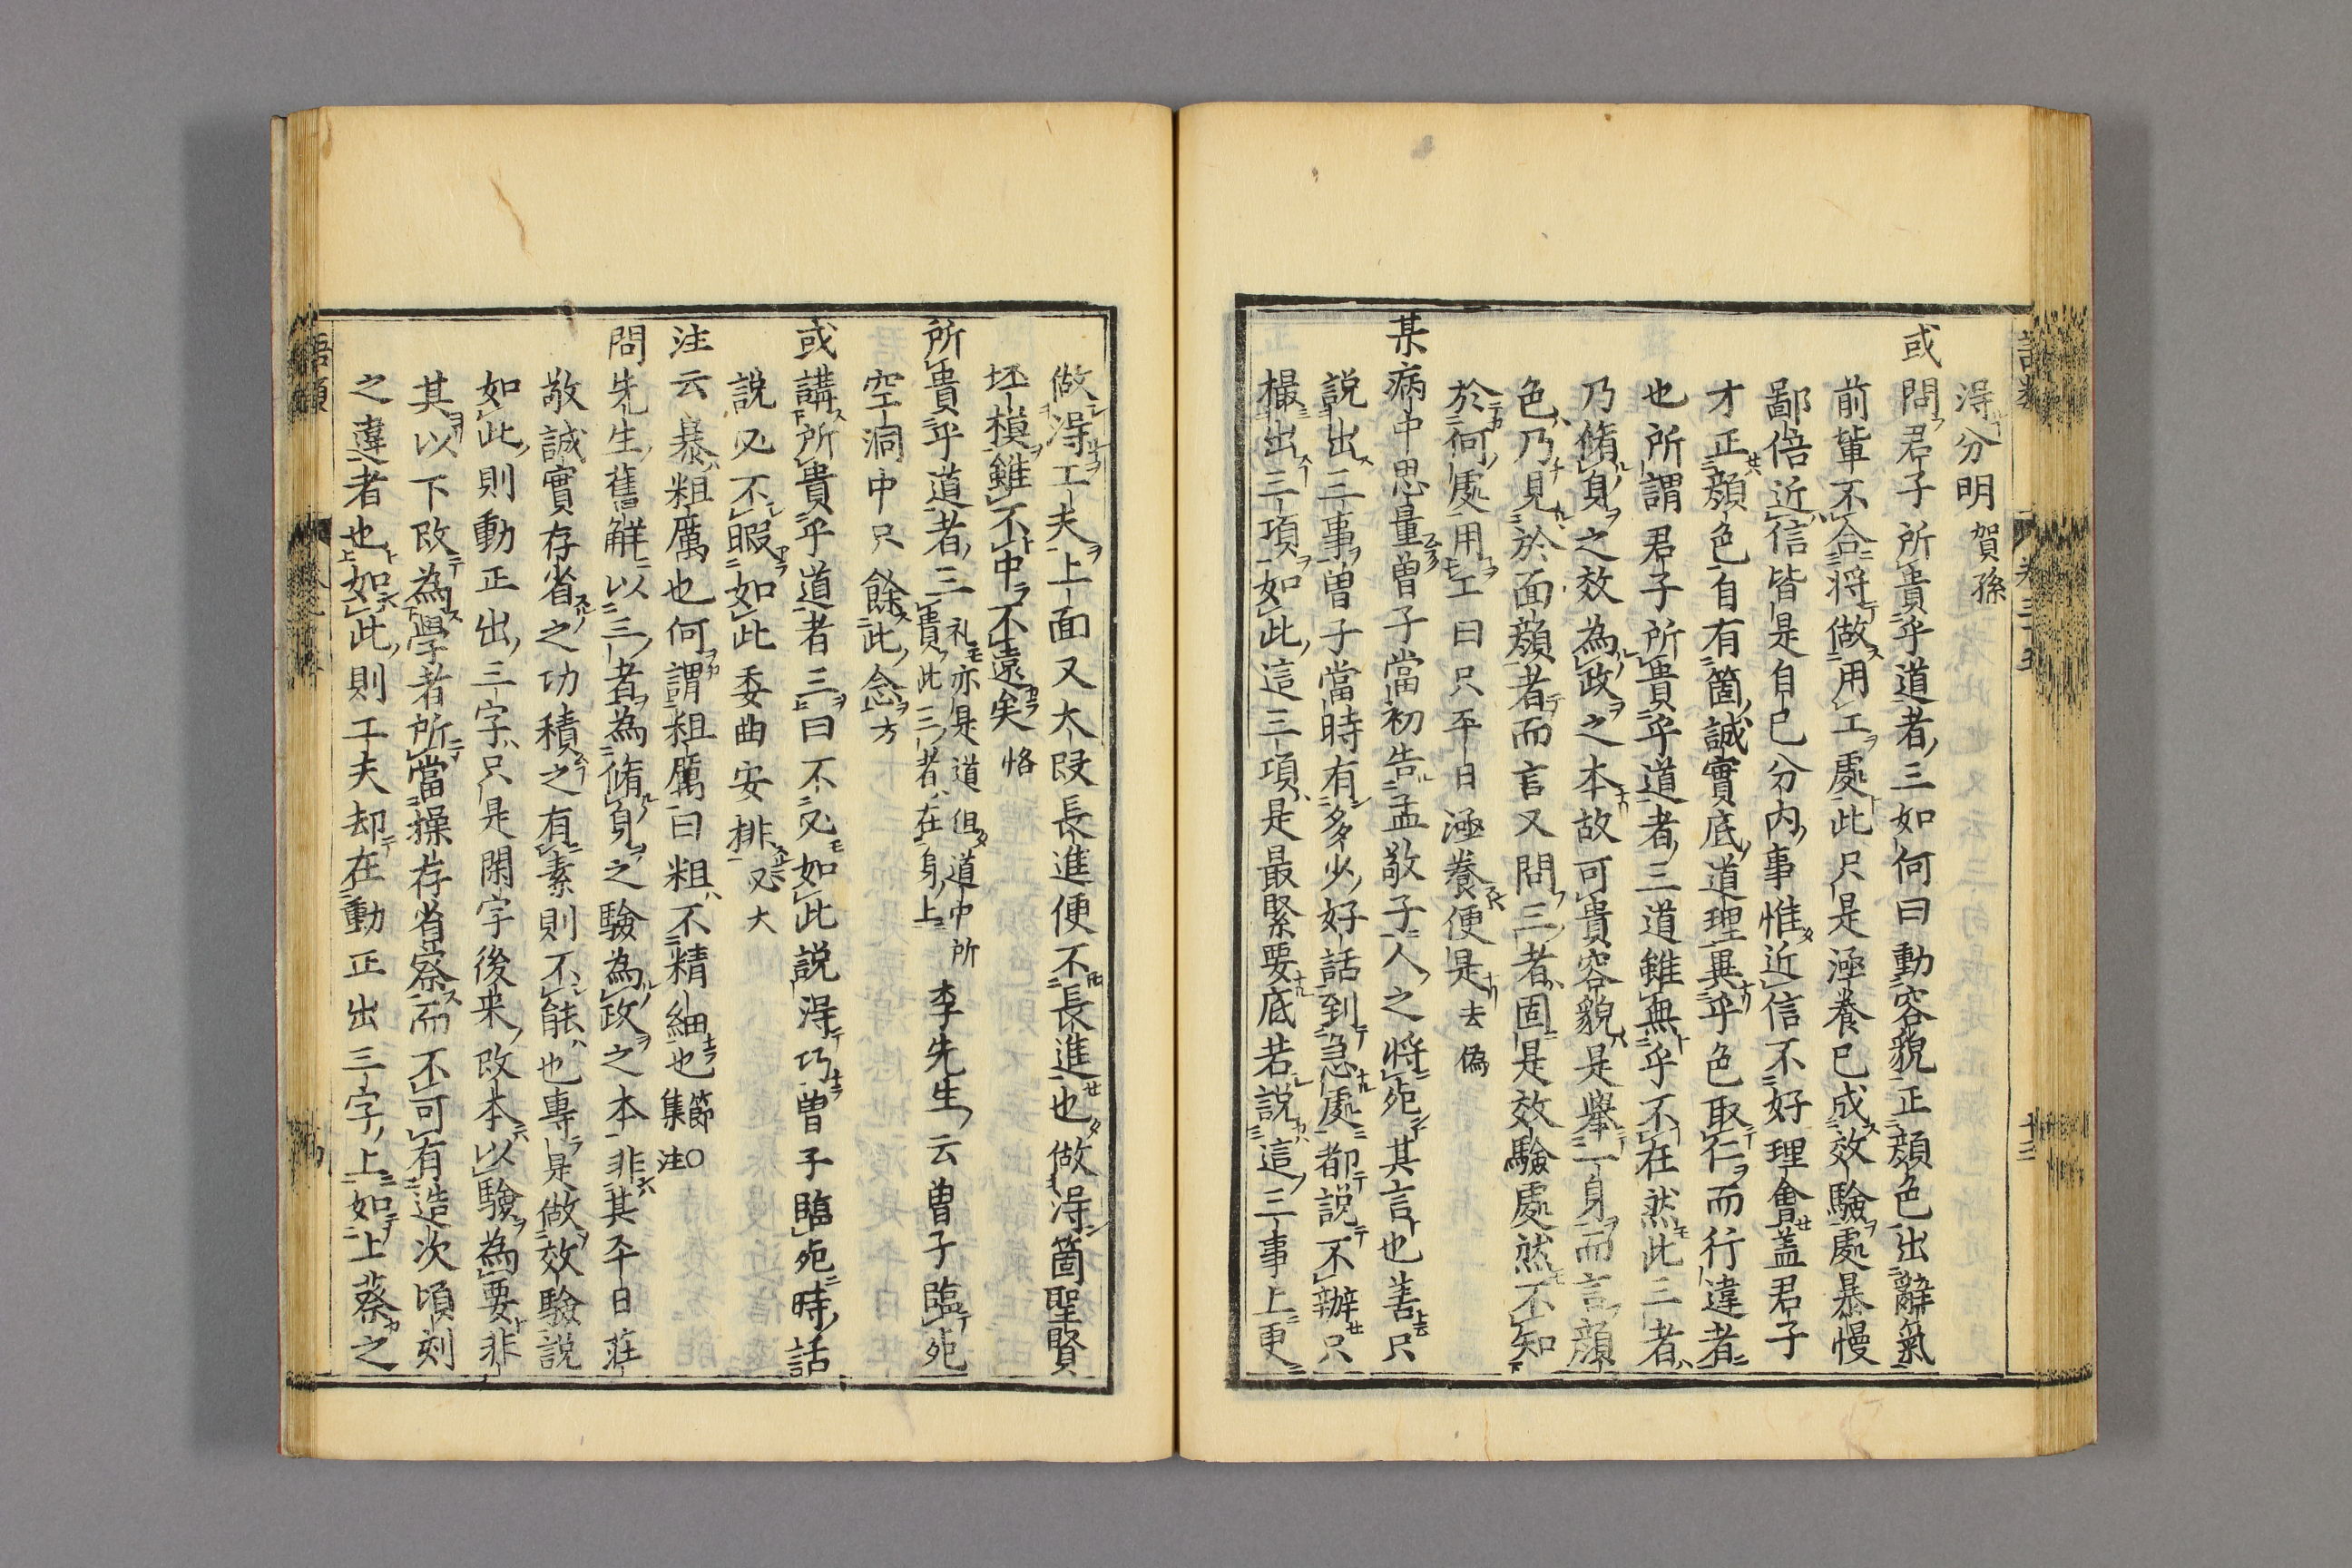 得分明賀孫
或問君子所貴乎道者三如何曰動容貌正顔色出辭氣
前輩不合將做用工處此只是涵養已成效驗處暴慢
鄙倍近信皆是自己分内事惟近信不好理會蓋君子
才正顔色自有箇誠實底道理異乎色取仁而行違者
也所謂君子所貴乎道者三道雖無乎不在然此三者
乃脩身之效為政之本故可貴容貌是舉一身而言顔
色乃見於面顔者而言又問三者固是效驗處然不知
於何處用工曰只平日涵養便是去偽
某病中思量曽子當初告孟敬子人之將死其言也善只
説出三事曽子當時有多少好話到急處都説不辦只
撮出三項如此這三項是最緊要底若説這三事上更
做得工夫上面又大段長進便不長進也做得箇聖賢
坯模雖不中不遠矣恪
所貴乎道者三礼亦是道但道中所貴此三者在身上李先生云曽子臨死
空洞中只餘此念方
或講所貴乎道者三曰不必如此説得巧曽子臨死時話
説必不暇如此委曲安排必大
注云暴粗厲也何謂粗厲曰粗不精細也節集注〇
問先生舊解以三者為脩身之驗為政之本非其平日莊
敬誠實存省之功積之有素則不能也專是做效驗説
如此則動正出三字只是閑字後来改本以驗為要非
其以下改為學者所當操存省察而不可有造次頃刻
之違者也如此則工夫却在動正出三字上如上蔡之